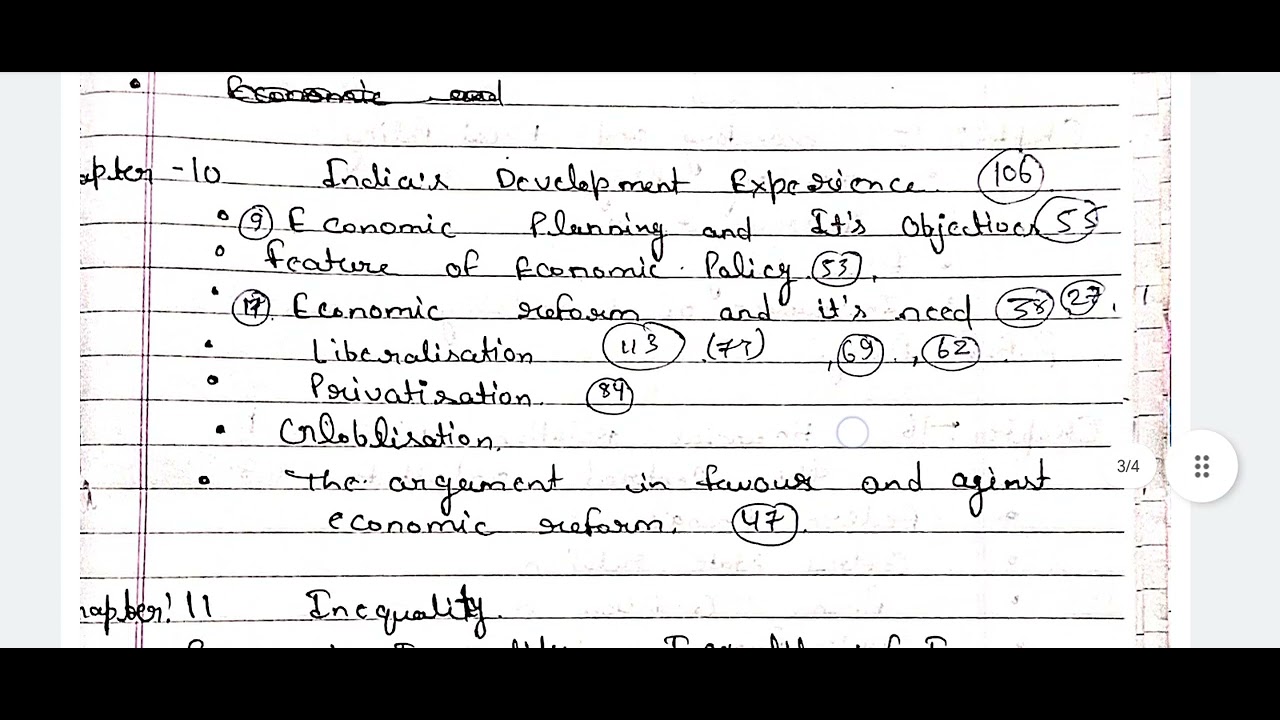 • Economic and
apter -10 India's Development Experience. (106)
• (9) Economic Planning and It's Objectives (55)
• feature of Economic Policy. (53).
• (17) Economic reform and it's need (38) (27).
• Liberalisation (113) (75), (69), (62)
• Privatisation. (84)
• Globlisation.
• The argument in favour and aginst
economic reform. (47).
3/4
hapter: 11 Inequality.